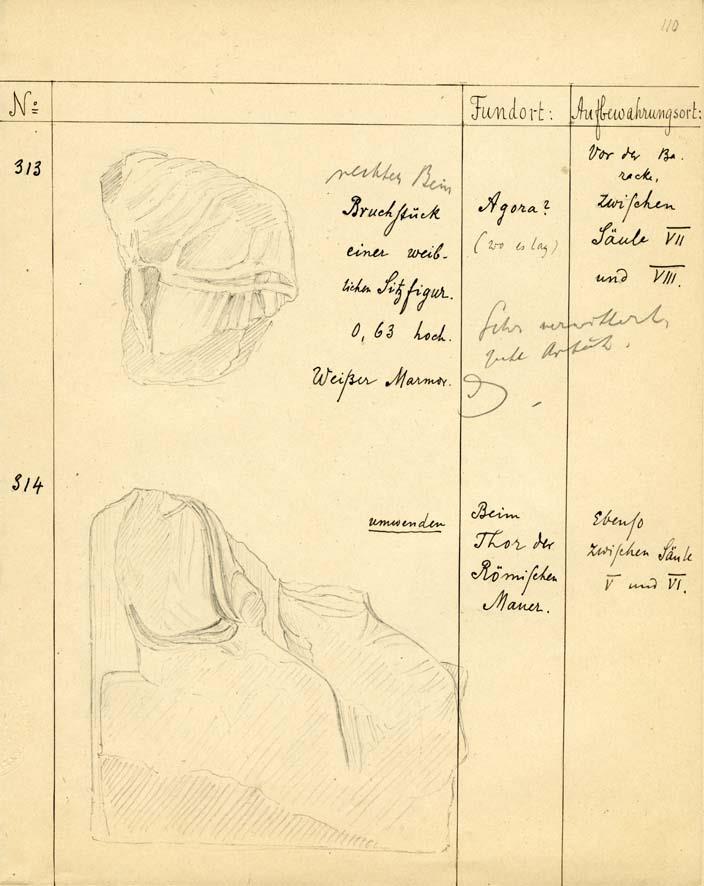 110
No Fundort: Aufbewahrungsort:
313
rechtes Bein
Bruchstück
einer weib-
lichen Sitzfigur.
0,63 hoch.
Weißer Marmor.
Agora?
(wo es lag)
Vor der Ba-
racke,
zwischen
Säule VII
und VIII.
Sehr verwittert,
gute Arbeit.
314
umwenden
Beim
Thor der
Römischen
Mauer.
Ebenso
zwischen Säule
V und VI.